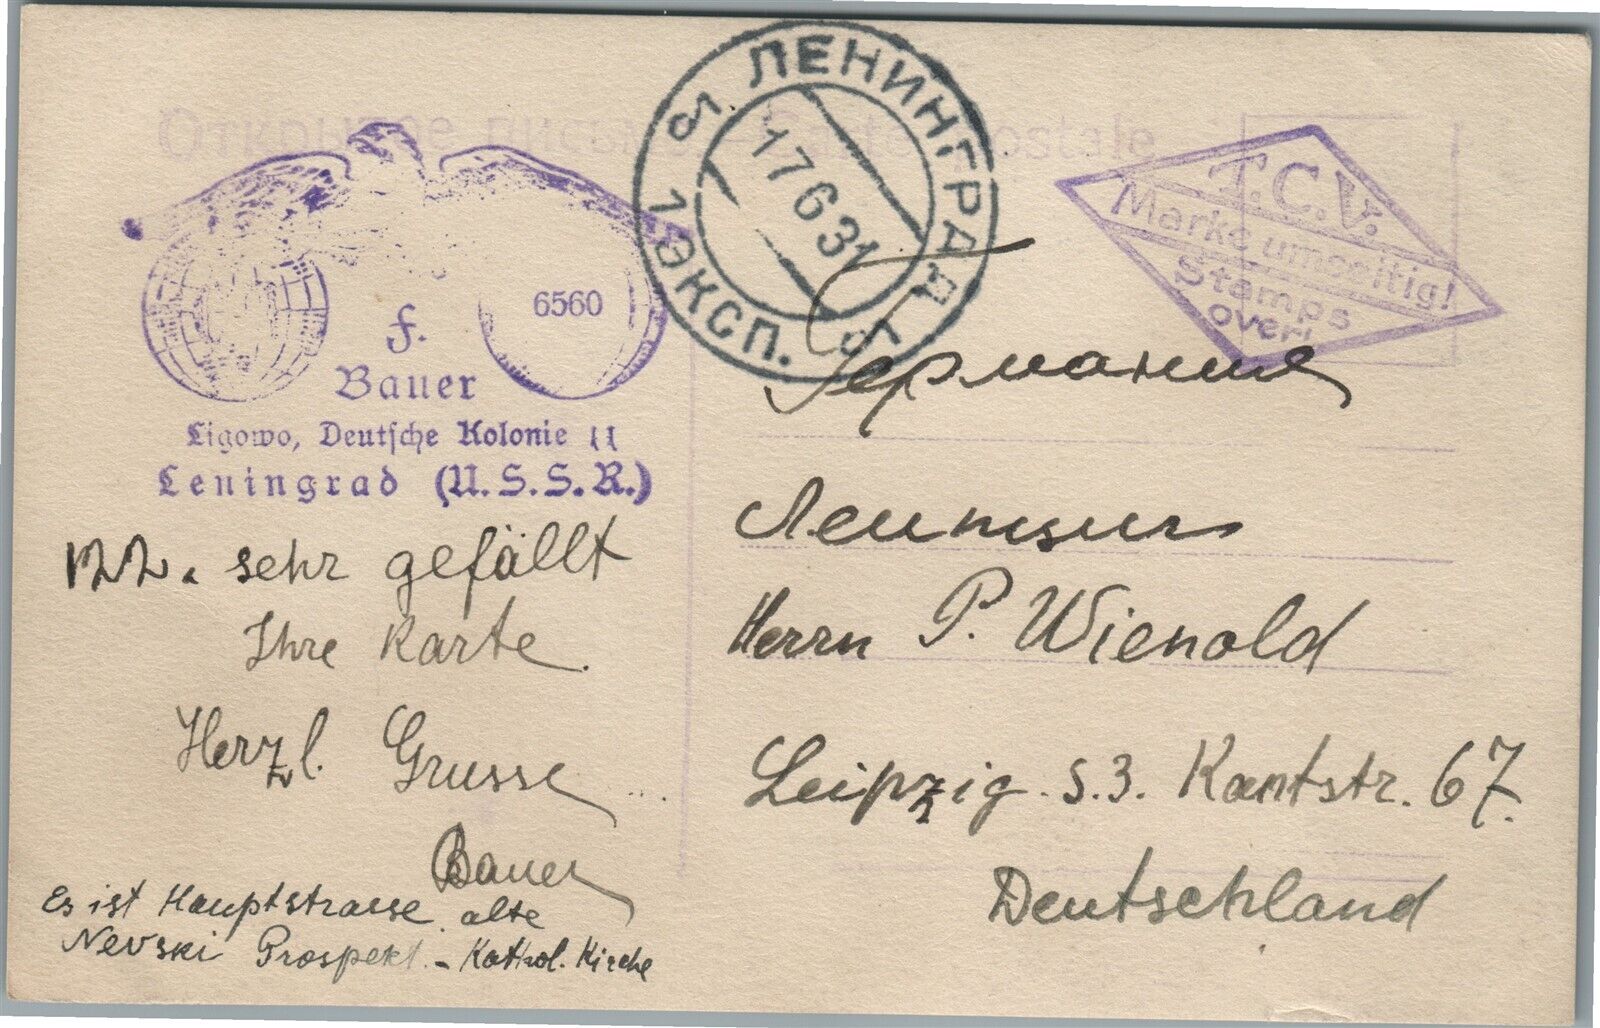 Открытое письмо. - Carte postale
ЛЕНИНГРАД
1 ЭКСП.
17 6 31
T.C.V.
Marke umseitig!
Stamps
over!
6560
F.
Bauer
Ligowo, Deutsche Kolonie 11
Leningrad (U.S.S.R.)
sehr gefällt
Ihre Karte.
Herzl. Grusse
Bauer
Es ist Hauptstrasse, alte
Nevski Prospekt. - Kathol. Kirche
Германия
Лейпциг
Herrn P. Wienold
Leipzig S.3. Kantstr. 67.
Deutschland